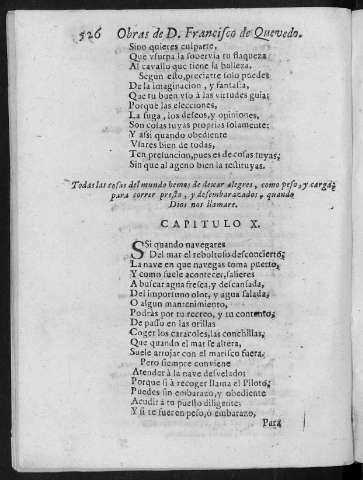 526 Obras de D. Francisco de Quevedo.
Sino quieres culparte,
Que vsurpa la sobervia tu flaqueza
Al cavallo que tiene la belleza.
Segun esto, preciarte solo puedes
De la imaginacion, y fantasia,
Que tu buen vso à las virtudes guia;
Porque las elecciones,
La fuga, los deseos, y opiniones,
Son cosas tuyas proprias solamente:
Y assi quando obediente
Vsares bien de todas,
Ten presuncion, pues es de cosas tuyas,
Sin que al ageno bien la restituyas.
Todas las cosas del mundo hemos de dexar alegres, como peso, y carga,
para correr presto, y desembarazados, quando
Dios nos llamare.
CAPITULO X.
SSi quando navegares
Del mar el reboltoso desconcierto,
La nave en que navegas toma puerto,
Y como suele acontecer, salieres
A buscar agua fresca, y descansada,
Del importuno olor, y agua salada,
O algun mantenimiento,
Podràs por tu recreo, y tu contento,
De passo en las orillas
Coger los caracoles, las conchillas,
Que quando el mar se altera,
Suele arrojar con el marisco fuera.
Pero siempre conviene
Atender à la nave desvelado;
Porque si à recoger llama el Piloto,
Puedes sin embarazo, y obediente
Acudir à tu puesto diligente:
Y si te fueren peso, ò embarazo,
Para